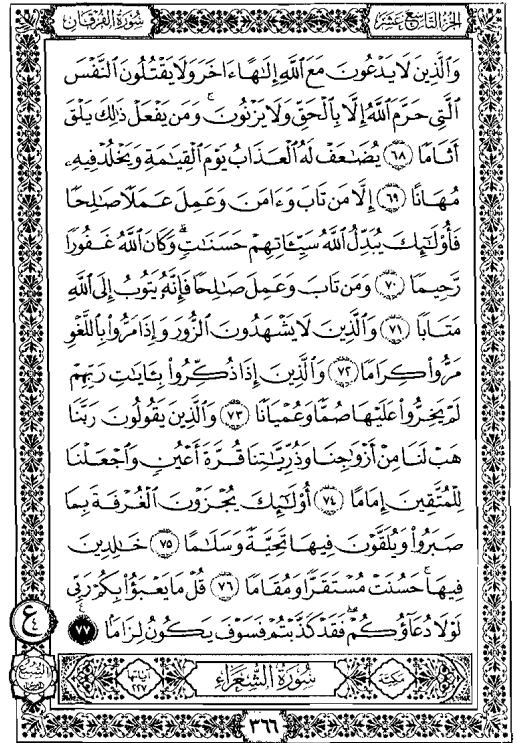 سُورَةُ الفُرْقَان
الجُزءُ التَّاسِعَ عَشَرَ
وَٱلَّذِينَ لَا يَدْعُونَ مَعَ ٱللَّهِ إِلَٰهًا ءَاخَرَ وَلَا يَقْتُلُونَ ٱلنَّفْسَ
ٱلَّتِي حَرَّمَ ٱللَّهُ إِلَّا بِٱلْحَقِّ وَلَا يَزْنُونَ ۚ وَمَن يَفْعَلْ ذَٰلِكَ يَلْقَ
أَثَامًا ٦٨ يُضَٰعَفْ لَهُ ٱلْعَذَابُ يَوْمَ ٱلْقِيَٰمَةِ وَيَخْلُدْ فِيهِۦ
مُهَانًا ٦٩ إِلَّا مَن تَابَ وَءَامَنَ وَعَمِلَ عَمَلًا صَٰلِحًا
فَأُو۟لَٰٓئِكَ يُبَدِّلُ ٱللَّهُ سَيِّـَٔاتِهِمْ حَسَنَٰتٍ ۗ وَكَانَ ٱللَّهُ غَفُورًا
رَّحِيمًا ٧٠ وَمَن تَابَ وَعَمِلَ صَٰلِحًا فَإِنَّهُۥ يَتُوبُ إِلَى ٱللَّهِ
مَتَابًا ٧١ وَٱلَّذِينَ لَا يَشْهَدُونَ ٱلزُّورَ وَإِذَا مَرُّوا۟ بِٱللَّغْوِ
مَرُّوا۟ كِرَامًا ٧٢ وَٱلَّذِينَ إِذَا ذُكِّرُوا۟ بِـَٔايَٰتِ رَبِّهِمْ
لَمْ يَخِرُّوا۟ عَلَيْهَا صُمًّا وَعُمْيَانًا ٧٣ وَٱلَّذِينَ يَقُولُونَ رَبَّنَا
هَبْ لَنَا مِنْ أَزْوَٰجِنَا وَذُرِّيَّٰتِنَا قُرَّةَ أَعْيُنٍ وَٱجْعَلْنَا
لِلْمُتَّقِينَ إِمَامًا ٧٤ أُو۟لَٰٓئِكَ يُجْزَوْنَ ٱلْغُرْفَةَ بِمَا
صَبَرُوا۟ وَيُلَقَّوْنَ فِيهَا تَحِيَّةً وَسَلَٰمًا ٧٥ خَٰلِدِينَ
فِيهَا ۚ حَسُنَتْ مُسْتَقَرًّا وَمُقَامًا ٧٦ قُلْ مَا يَعْبَؤُا۟ بِكُمْ رَبِّي
لَوْلَا دُعَآؤُكُمْ ۖ فَقَدْ كَذَّبْتُمْ فَسَوْفَ يَكُونُ لِزَامًا ٧٧
ع ٤
مكيّة
سُورَةُ الشُّعَرَاءِ
آياتها ٢٢٧
٣٦٦